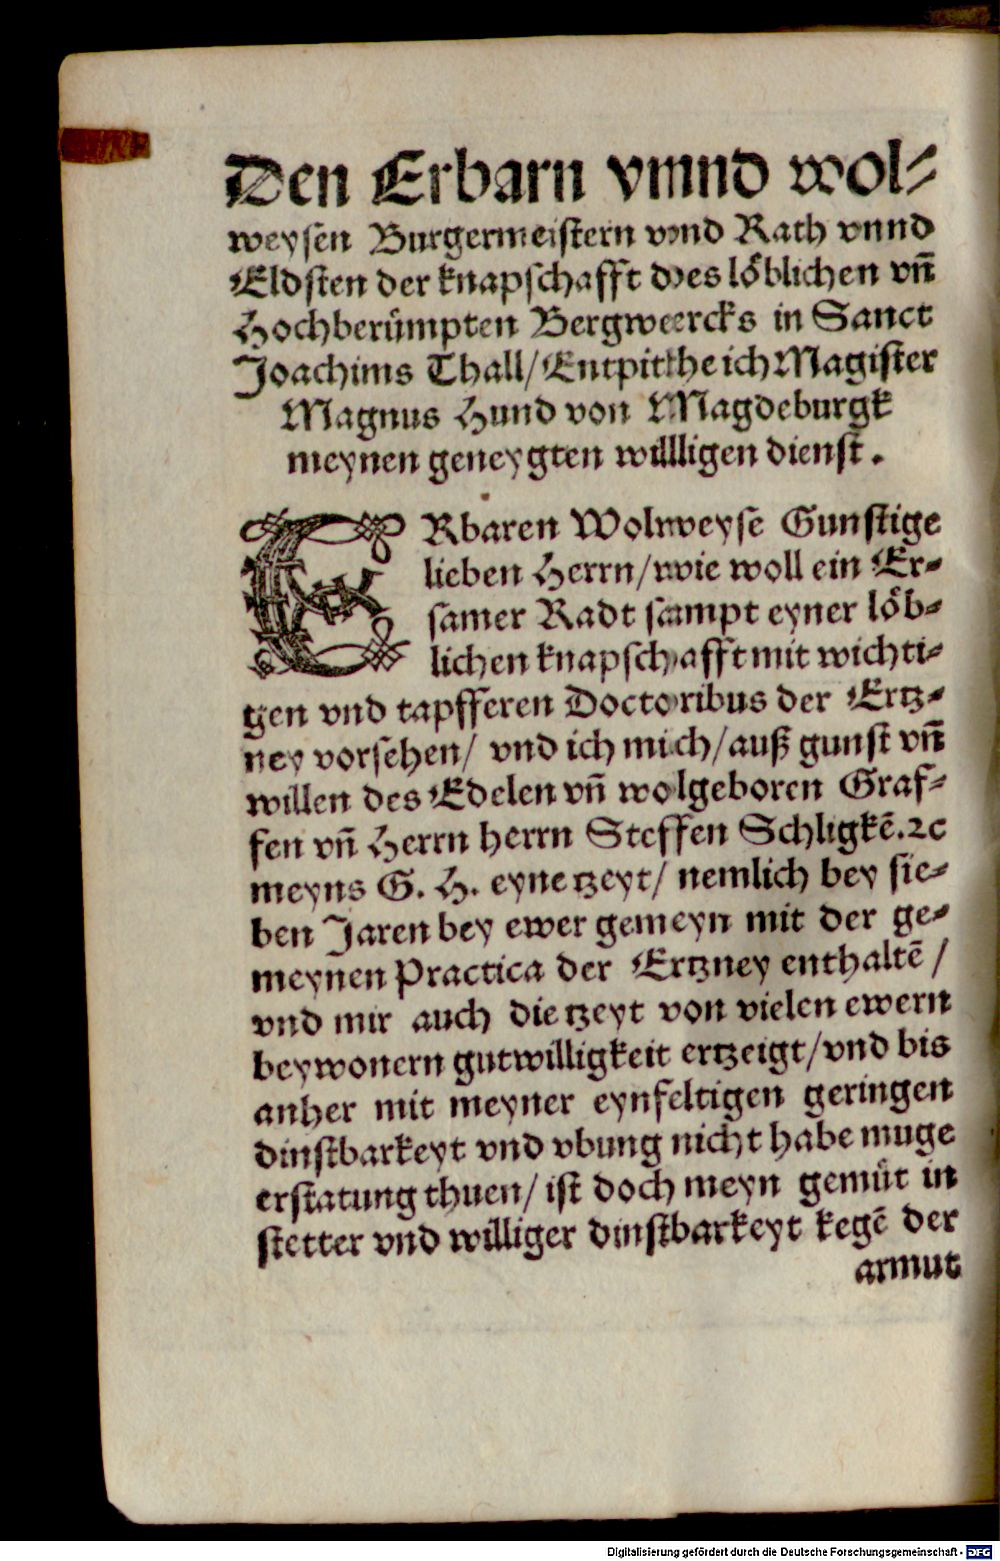 Den Erbarn vnnd wol⸗
weysen Burgermeistern vnnd Rath vnnd
Eldsten der knapschafft des löblichen vn̄
Hochberümpten Bergwercks in Sanct
Joachims Thall/ Entpitthe ich Magister
Magnus Hund von Magdeburgk
meynen geneygten willligen dienst.
ERbaren Wolnweyse Gunstige
lieben Herrn/ wie woll ein Er⸗
samer Radt sampt eyner löb⸗
lichen knapschafft mit wichti⸗
gen vnd tapfferen Doctoribus der Ertz⸗
ney vorsehen/ vnd ich mich/ auß gunst vn̄
willen des Edelen vn̄ wolgeboren Graf⸗
fen vn̄ Herrn herrn Steffen Schligkē.ꝛc
meyns G. H. eyne tzeyt/ nemlich bey sie⸗
ben Jaren bey ewer gemeyn mit der ge⸗
meynen Practica der Ertzney enthaltē /
vnd mir auch die tzeyt von vielen ewern
beywonern gutwilligkeit ertzeigt/ vnd bis
anher mit meyner eynfeltigen geringen
dinstbarkeyt vnd vbung nicht habe muge
erstatung thuen/ ist doch meyn gemüt in
stetter vnd williger dinstbarkeyt kegē der
armut
Digitalisierung gefördert durch die Deutsche Forschungsgemeinschaft - DFG